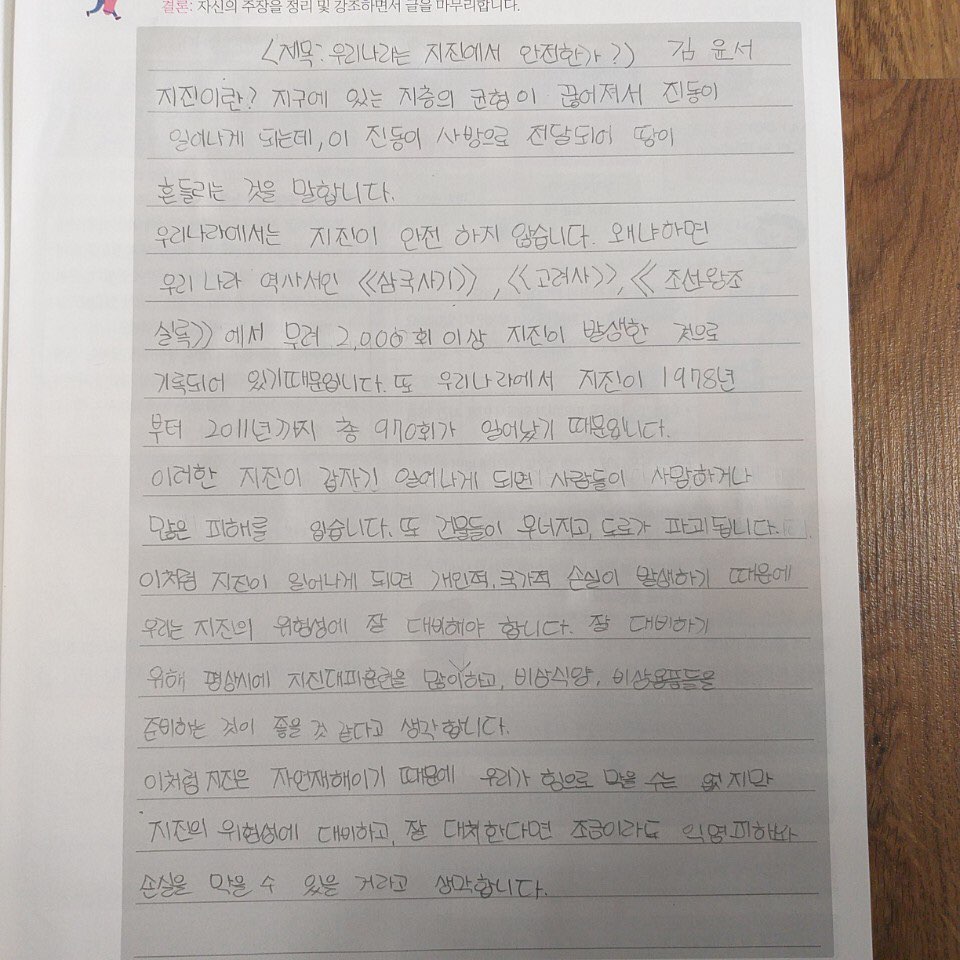 결론: 자신의 주장을 정리 및 강조하면서 글을 마무리합니다.
<제목: 우리나라는 지진에서 안전한가?> 김윤서
지진이란? 지구에 있는 지층의 균형이 끊어져서 진동이
일어나게 되는데, 이 진동이 사방으로 전달되어 땅이
흔들리는 것을 말합니다.
우리나라에서는 지진이 안전 하지 않습니다. 왜냐하면
우리 나라 역사서인 《삼국사기》, 《고려사》, 《조선왕조
실록》에서 무려 2,000회 이상 지진이 발생한 것으로
기록되어 있기때문입니다. 또 우리나라에서 지진이 1978년
부터 2011년까지 총 970회가 일어났기 때문입니다.
이러한 지진이 갑자기 일어나게 되면 사람들이 사망하거나
많은 피해를 입습니다. 또 건물들이 무너지고, 도로가 파괴됩니다.
이처럼 지진이 일어나게 되면 개인적, 국가적 손실이 발생하기 때문에
우리는 지진의 위험성에 잘 대비해야 합니다. 잘 대비하기
위해 평상시에 지진대피훈련을 많이하고, 비상식량, 비상용품들을
준비하는 것이 좋을 것 같다고 생각합니다.
이처럼 지진은 자연재해이기 때문에 우리가 힘으로 막을 수는 없지만
지진의 위험성에 대비하고, 잘 대처한다면 조금이라도 인명피해와
손실을 막을 수 있을 거라고 생각합니다.